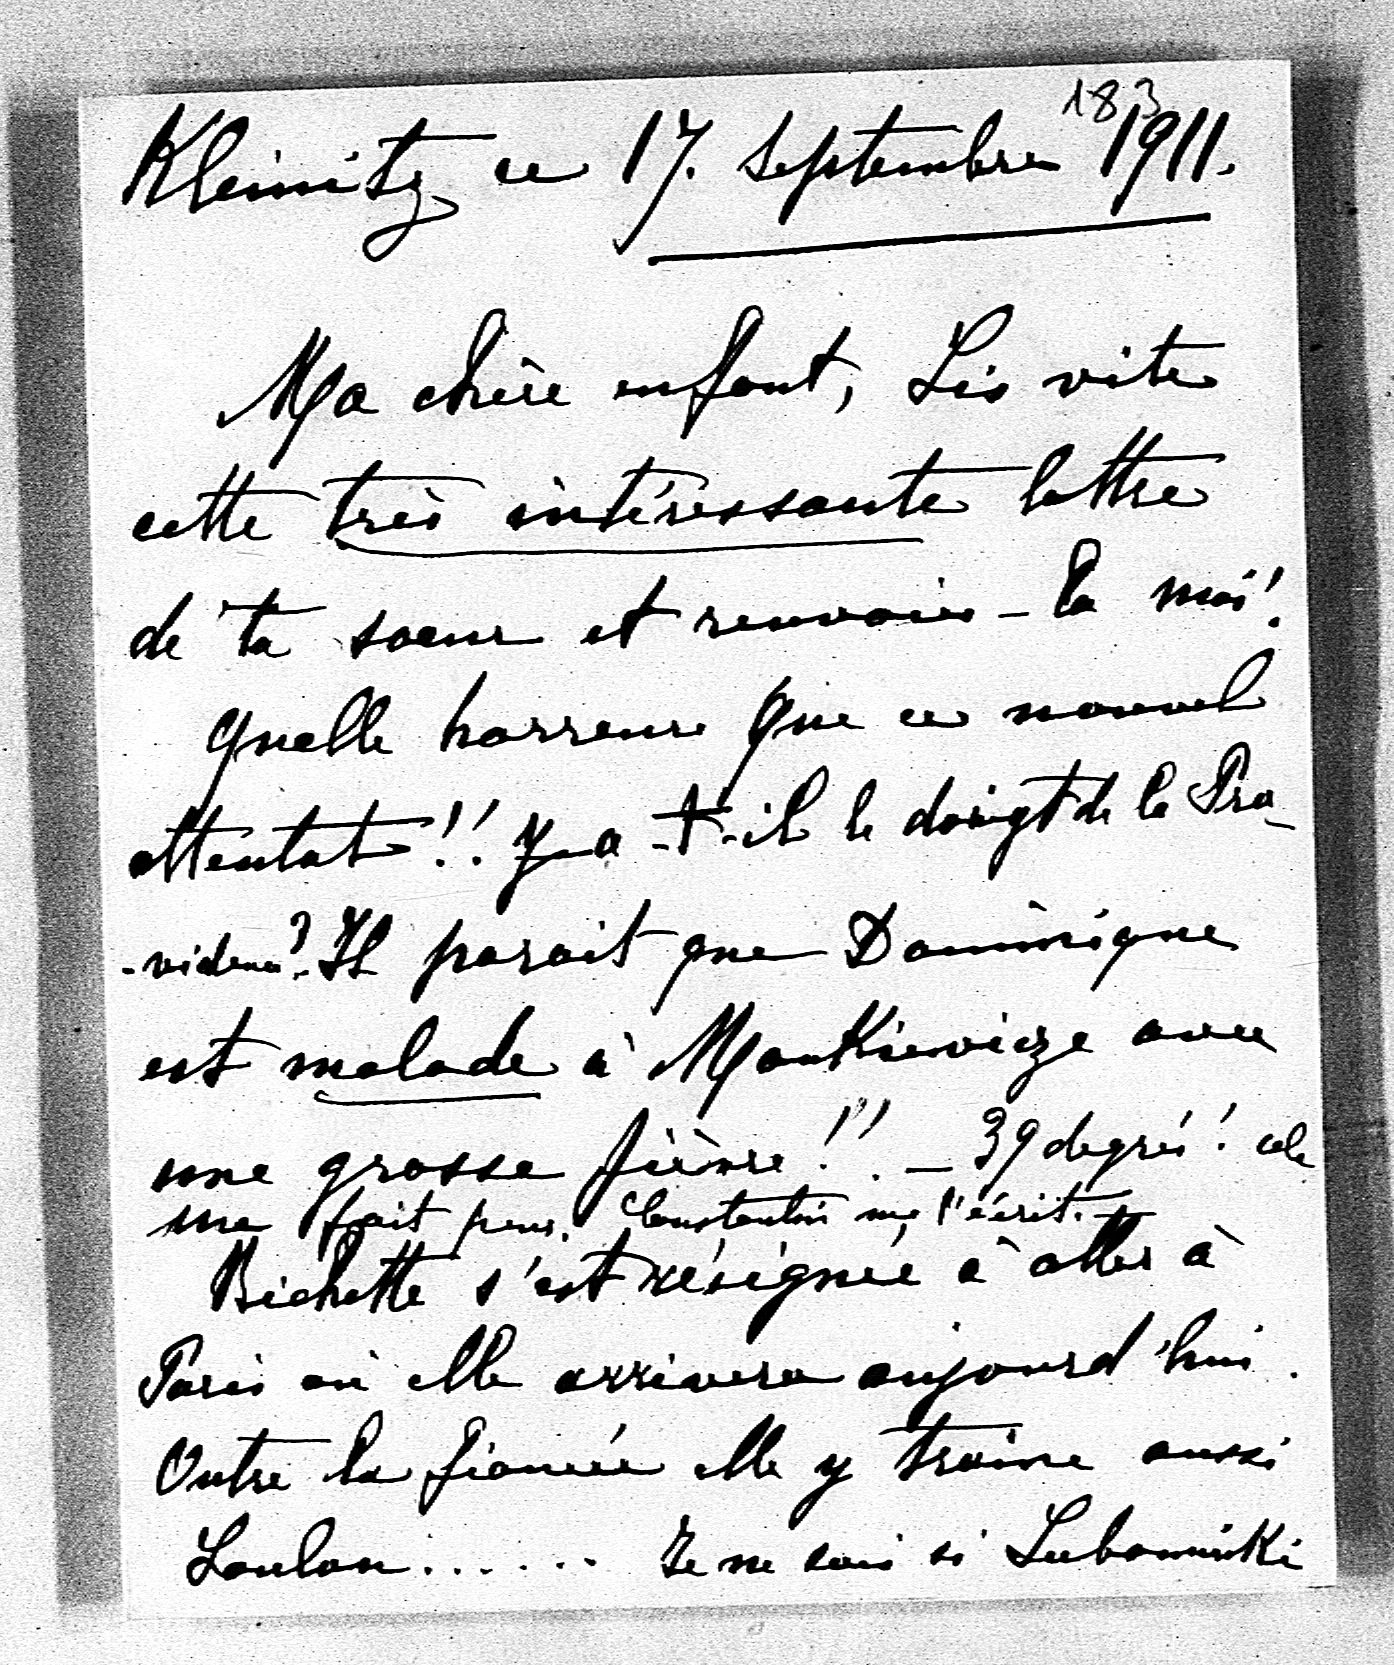 183
Kleinitz ce 17. Septembre 1911.
Ma chère enfant, Lis vite
cette très intéressante lettre
de ta soeur et renvoies-la moi!
Quelle horreur que ce nouvel
attentat!! Y-a-t-il le doigt de la Pro-
-vidence? Il parait que Dominique
est malade à Mankiewicze avec
une grosse fièvre!! — 39 degrés! cela
me fait peur. Constantin me l'écrit. —
Bichette s'est résignée à aller à
Paris où elle arrivera aujourd'hui.
Outre la fiancée elle y traine aussi
Loulou...... Je ne sais si Lubomirski